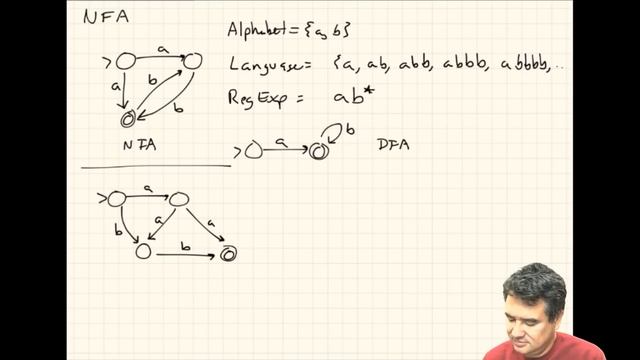 NFA
Alphabet = {a, b}
Language = {a, ab, abb, abbb, abbbb, ..
RegExp = ab*
a
a
b
b
NFA
a
b
DFA
a
b
a
a
b